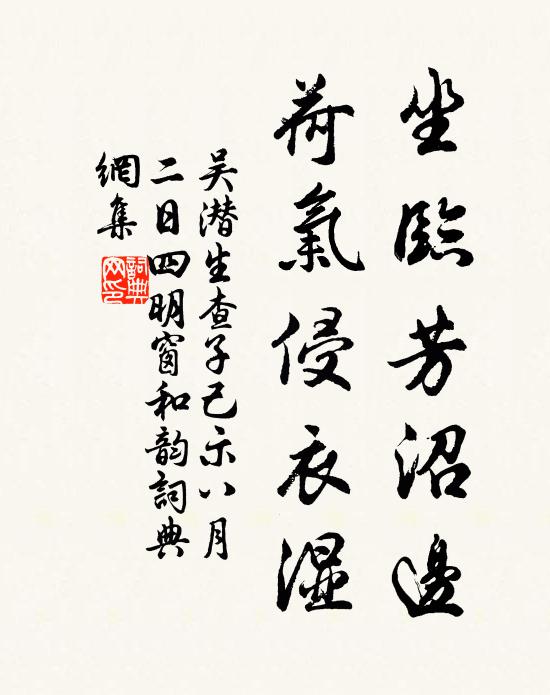 坐臨芳沼邊
荷氣侵衣濕
吴潛生查子己示八月
二日四明窗和韵詞典
網集
詞典網印